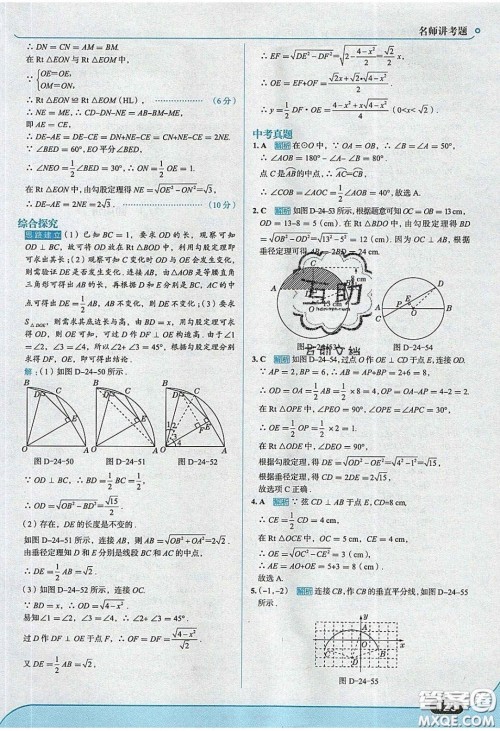 名师讲考题
∴ DN = CN = AM = BM.
在 Rt △EON 与 Rt △EOM 中,
∵ { OE = OE,
OM = ON,
∴ Rt △EON ≌ Rt △EOM (HL), (6 分)
∴ NE = ME, ∴ CD-DN-NE = AB-BM-ME,
即 AE = CE,
∴ DE-AE = DE-CE = DN+NE-CE = CN+NE-CE = 2NE.
∵ ∠BED = 60°, EO 平分 ∠BED,
∴ ∠NEO = 1/2 ∠BED = 30°, ∴ ON = 1/2 OE = 1.
在 Rt △EON 中, 由勾股定理得 NE = √(OE²-ON²) = √3,
∴ DE-AE = 2√3. (10 分)
综合探究
思路建立 (1) 已知 BC = 1, 要求 OD 的长, 观察图形可知
OD ⊥ BC, 故可将 OD 放在 Rt △BOD 中, 利用勾股定理可
得. (2) 观察图形可知 C 变化时 OD 与 OE 会发生变化,
则需验证 DE 是否发生变化. 连接 AB, 由 △AOB 为等腰直角
三角形可得出 AB 的长, 根据 D 和 E 分别是 BC, AC 的中
点可得出 DE = 1/2 AB, AB 不变, 则 DE 不变; (3) 要求
S△DOE, 则需求其底边长与高, 由 BD = x, 可用勾股定理可
求得 OD, 则 OE 可知, 可过 D 作 DF ⊥ OE 构造高. 由于∠1
= ∠2, ∠3 = ∠4, 所以∠2+∠3 = 45°, 根据勾股定理分别
求得 DF, EF 即可.
解: (1) 如图 D-24-50 所示.
图 D-24-50 图 D-24-51 图 D-24-52
∵ OD ⊥ BC, ∴ BD = 1/2 BC = 1/2,
∴ OD = √(OB²-BD²) = √15/2.
(2) 存在, DE 的长度是不变的.
如图 D-24-51 所示, 连接 AB, 则 AB = √(OB²+OA²) = 2√2.
由垂径定理可知 D 和 E 分别是线段 BC 和 AC 的中点,
∴ DE = 1/2 AB = √2.
(3) 如图 D-24-52 所示, 连接 OC.
∵ BD = x, ∴ OD = √(4-x²).
易知∠1 = ∠2, ∠3 = ∠4, ∴ ∠2+∠3 = 45°.
过 D 作 DF ⊥ OE 于点 F, ∴ DF = √(4-x²)/√2.
又 DE = 1/2 AB = √2,
∴ EF = √(DE²-DF²) = √(2-(4-x²)/2) = √2x/2,
∴ OE = EF+OF = (√2x+√2·√(4-x²))/2,
∴ y = 1/2 DF·OE = (4-x²+x√(4-x²))/4 (0<x<√2).
中考真题
1. A 解析 在⊙O 中, ∵ OA = OB, ∴ ∠B = ∠A = 50°,
∴ ∠AOB = 180°-∠A-∠B = 80°.
点 C 是 AB 的中点, ∴ AC = CB,
∴ ∠AOC = ∠BOC = 1/2 ∠AOB = 40°. 故选 A.
2. C 解析 如图 D-24-53 所示, 根据题意可知 OC = OB = 13 cm,
OD = 13-8 = 5 (cm). 在 Rt △BDO 中, 由勾股定理得 BD =
√(OB²-OD²) = √(13²-5²) = 12 (cm). 因为 OC ⊥ AB, 根据
垂径定理可得 AB = 2BD = 24 cm.
图 D-24-54
3. C 解析 如图 D-24-54, 过点 O 作 OE ⊥ CD 于点 E, 连接 OD.
∵ AP = 2, BP = 6, ∴ AB = AP+BP = 2+6 = 8,
∴ OD = OA = 1/2 AB = 1/2 × 8 = 4, ∴ OP = OA-AP = 4-2 = 2.
在 Rt △OPE 中, ∠PEO = 90°, ∠OPE = ∠APC = 30°,
∴ OE = 1/2 OP = 1/2 × 2 = 1.
在 Rt △ODE 中, ∠DEO = 90°,
根据勾股定理, 得 DE = √(OD²-OE²) = √(4²-1²) = √15.
根据垂径定理, 得 CD = 2DE = 2√15,
故选项 C 正确.
4. A 解析 ∵ 弦 CD ⊥ AB 于点 E, CD = 8 cm,
∴ CE = 1/2 CD = 4 cm.
在 Rt △OCE 中, OC = 5 cm, CE = 4 cm,
∴ OE = √(OC²-CE²) = 3 cm,
∴ AE = AO+OE = 5+3 = 8 (cm).
故选 A.
5. (-1, -2) 解析 连接 CB, 作 CB 的垂直平分线, 如图 D-24-55
所示.
图 D-24-55
互助
答案圈
MXQE.COM